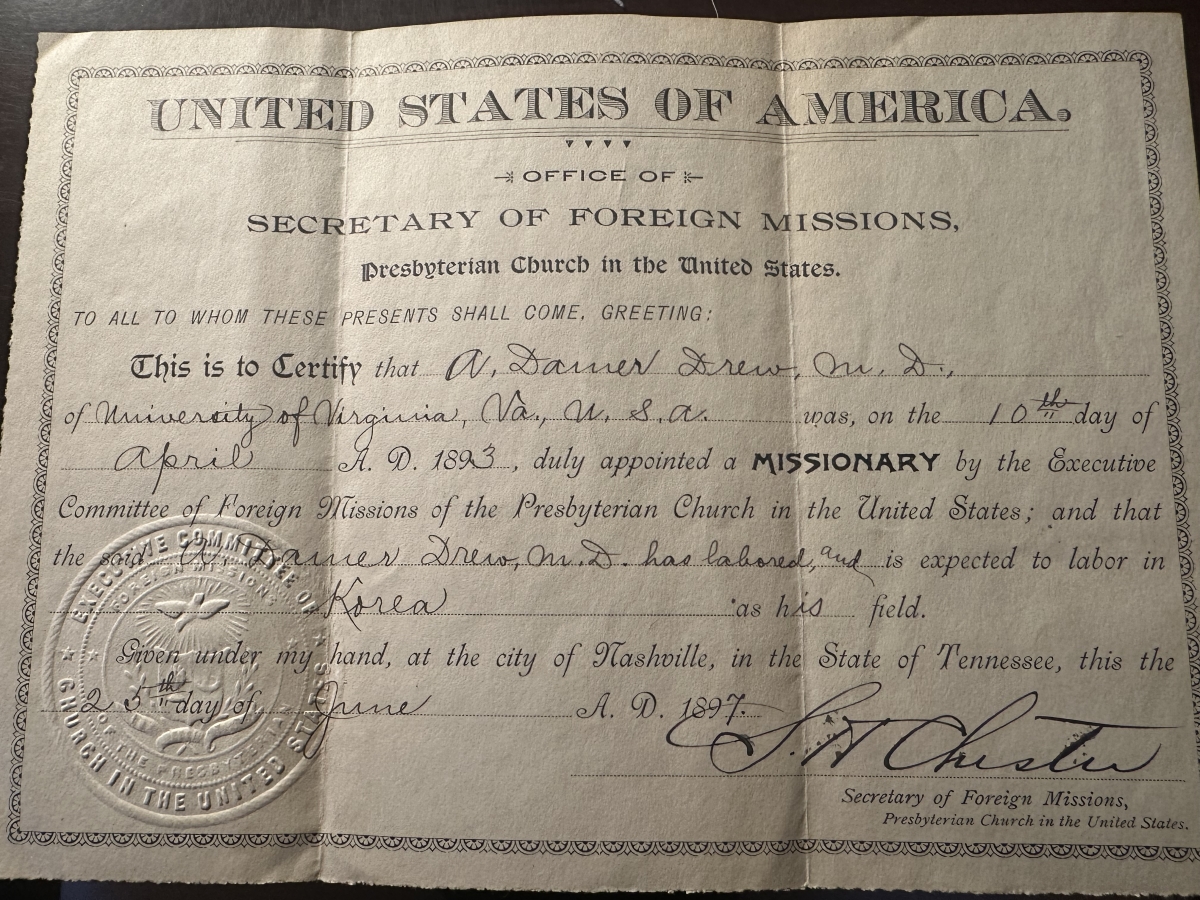 UNITED STATES OF AMERICA.
OFFICE OF
SECRETARY OF FOREIGN MISSIONS,
Presbyterian Church in the United States.
TO ALL TO WHOM THESE PRESENTS SHALL COME, GREETING:
This is to Certify that A. Damer Drew, M. D.,
of University of Virginia, Va., U. S. A. was, on the 10th day of
April A. D. 1893, duly appointed a MISSIONARY by the Executive
Committee of Foreign Missions of the Presbyterian Church in the United States; and that
the said A. Damer Drew, M.D. has labored, and is expected to labor in
Korea as his field.
Given under my hand, at the city of Nashville, in the State of Tennessee, this the
25th day of June A. D. 1897.
S. H. Chester
Secretary of Foreign Missions,
Presbyterian Church in the United States.
EXECUTIVE COMMITTEE OF
FOREIGN MISSIONS
OF THE PRESBYTERIAN
CHURCH IN THE UNITED STATES